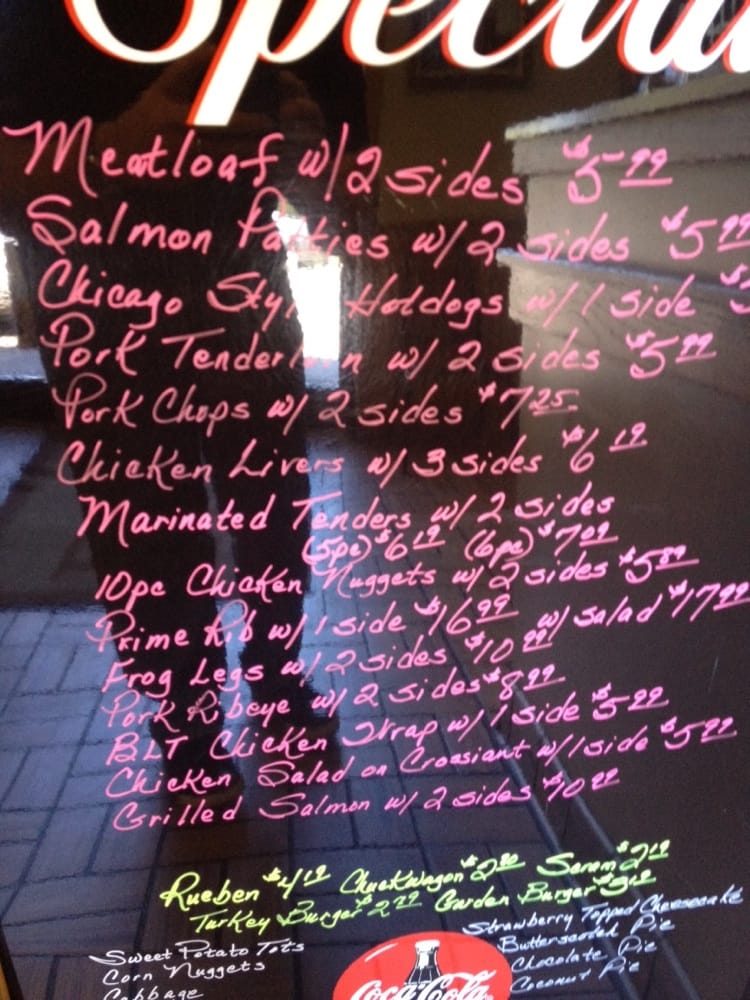 Special
Meatloaf w/ 2 sides $5.99
Salmon Patties w/ 2 sides $5.99
Chicago Style Hotdogs w/ 1 side
Pork Tenderloin w/ 2 sides $5.99
Pork Chops w/ 2 sides $7.25
Chicken Livers w/ 3 sides $6.19
Marinated Tenders w/ 2 sides
(5pc) $6.19 (6pc) $7.09
10pc Chicken Nuggets w/ 2 sides $5.89
Prime Rib w/ 1 side $16.99 w/ salad $17.99
Frog Legs w/ 2 sides $10.99
Pork Ribeye w/ 2 sides $8.99
BLT Chicken Wrap w/ 1 side $5.99
Chicken Salad on Croasiant w/ 1 side $5.99
Grilled Salmon w/ 2 sides $10.99
Rueben $4.19 Chuckwagon $2.90 $2.19
Turkey Burger $2.79 Garden Burger
Sweet Potato Tots
Corn Nuggets
Cabbage
Strawberry Topped Cheesecake
Butterscotch Pie
Chocolate Pie
Coconut Pie
Coca-Cola